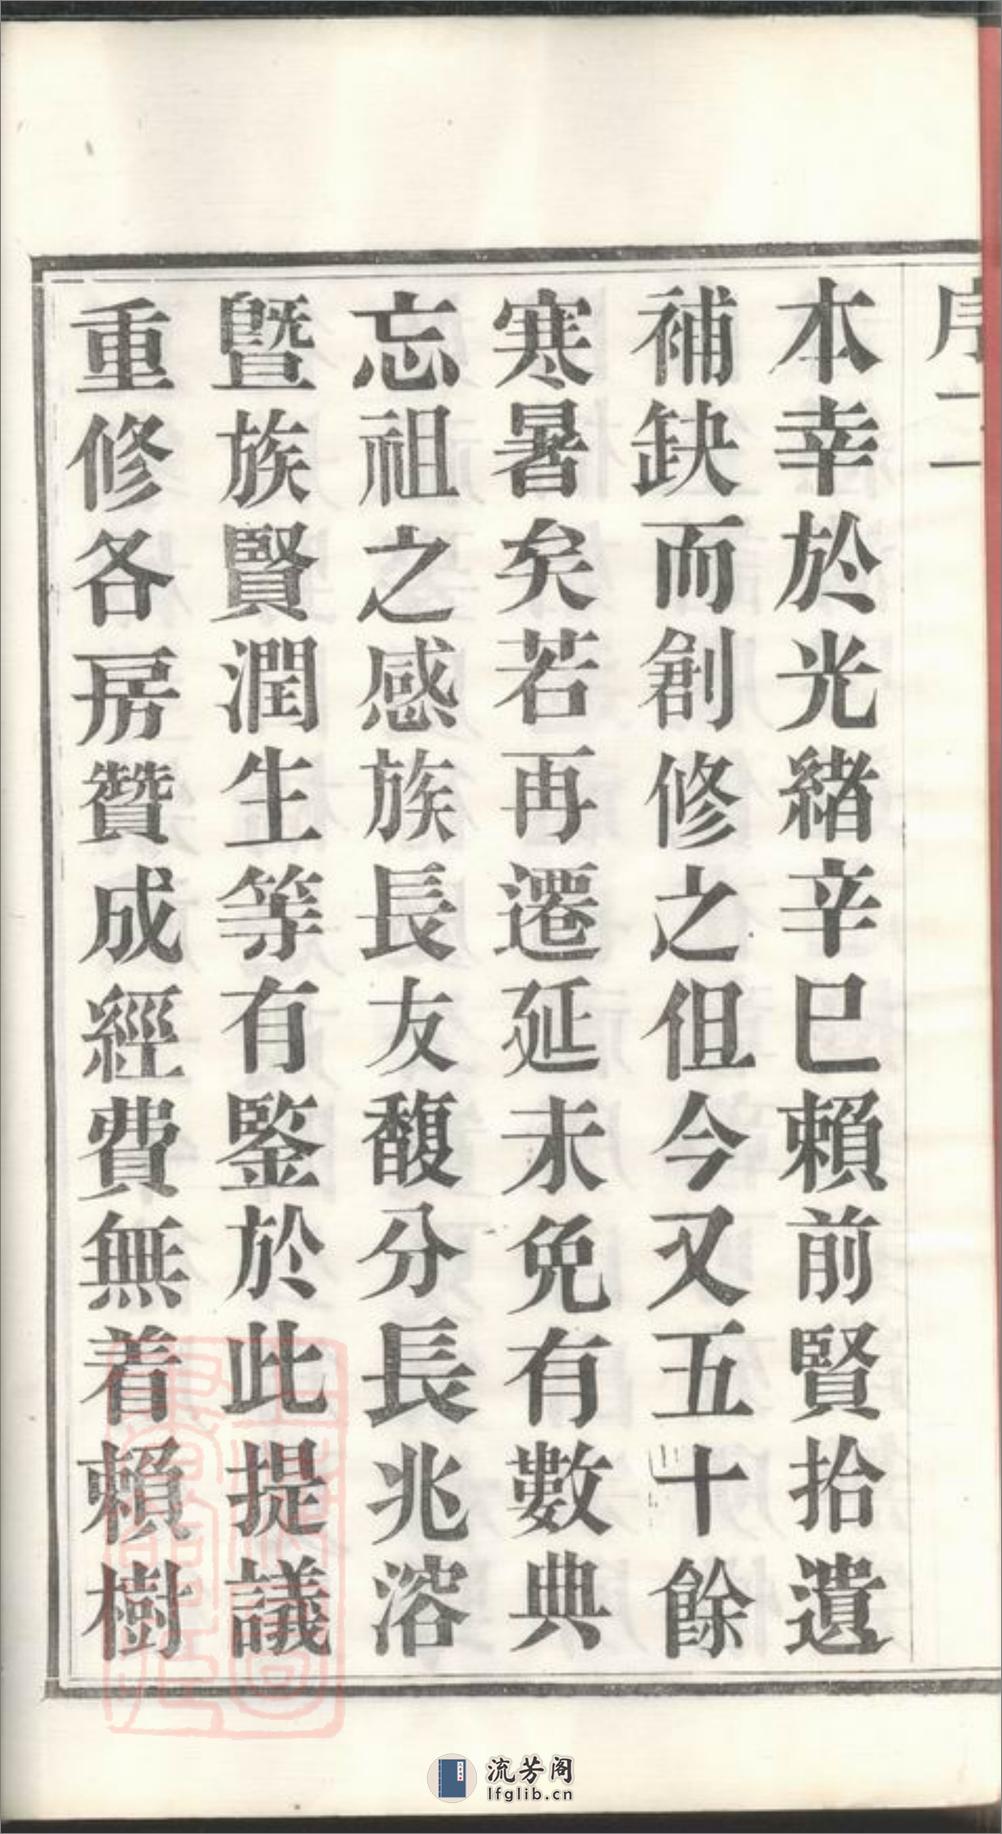 序二
本幸於光緒辛巳賴前賢拾遺
補缺而創修之但今又五十餘
寒暑矣若再遷延未免有數典
忘祖之感族長友馥分長兆溶
暨族賢潤生等有鑒於此提議
重修各房贊成經費無着賴樹
流芳阁
lfglib.cn